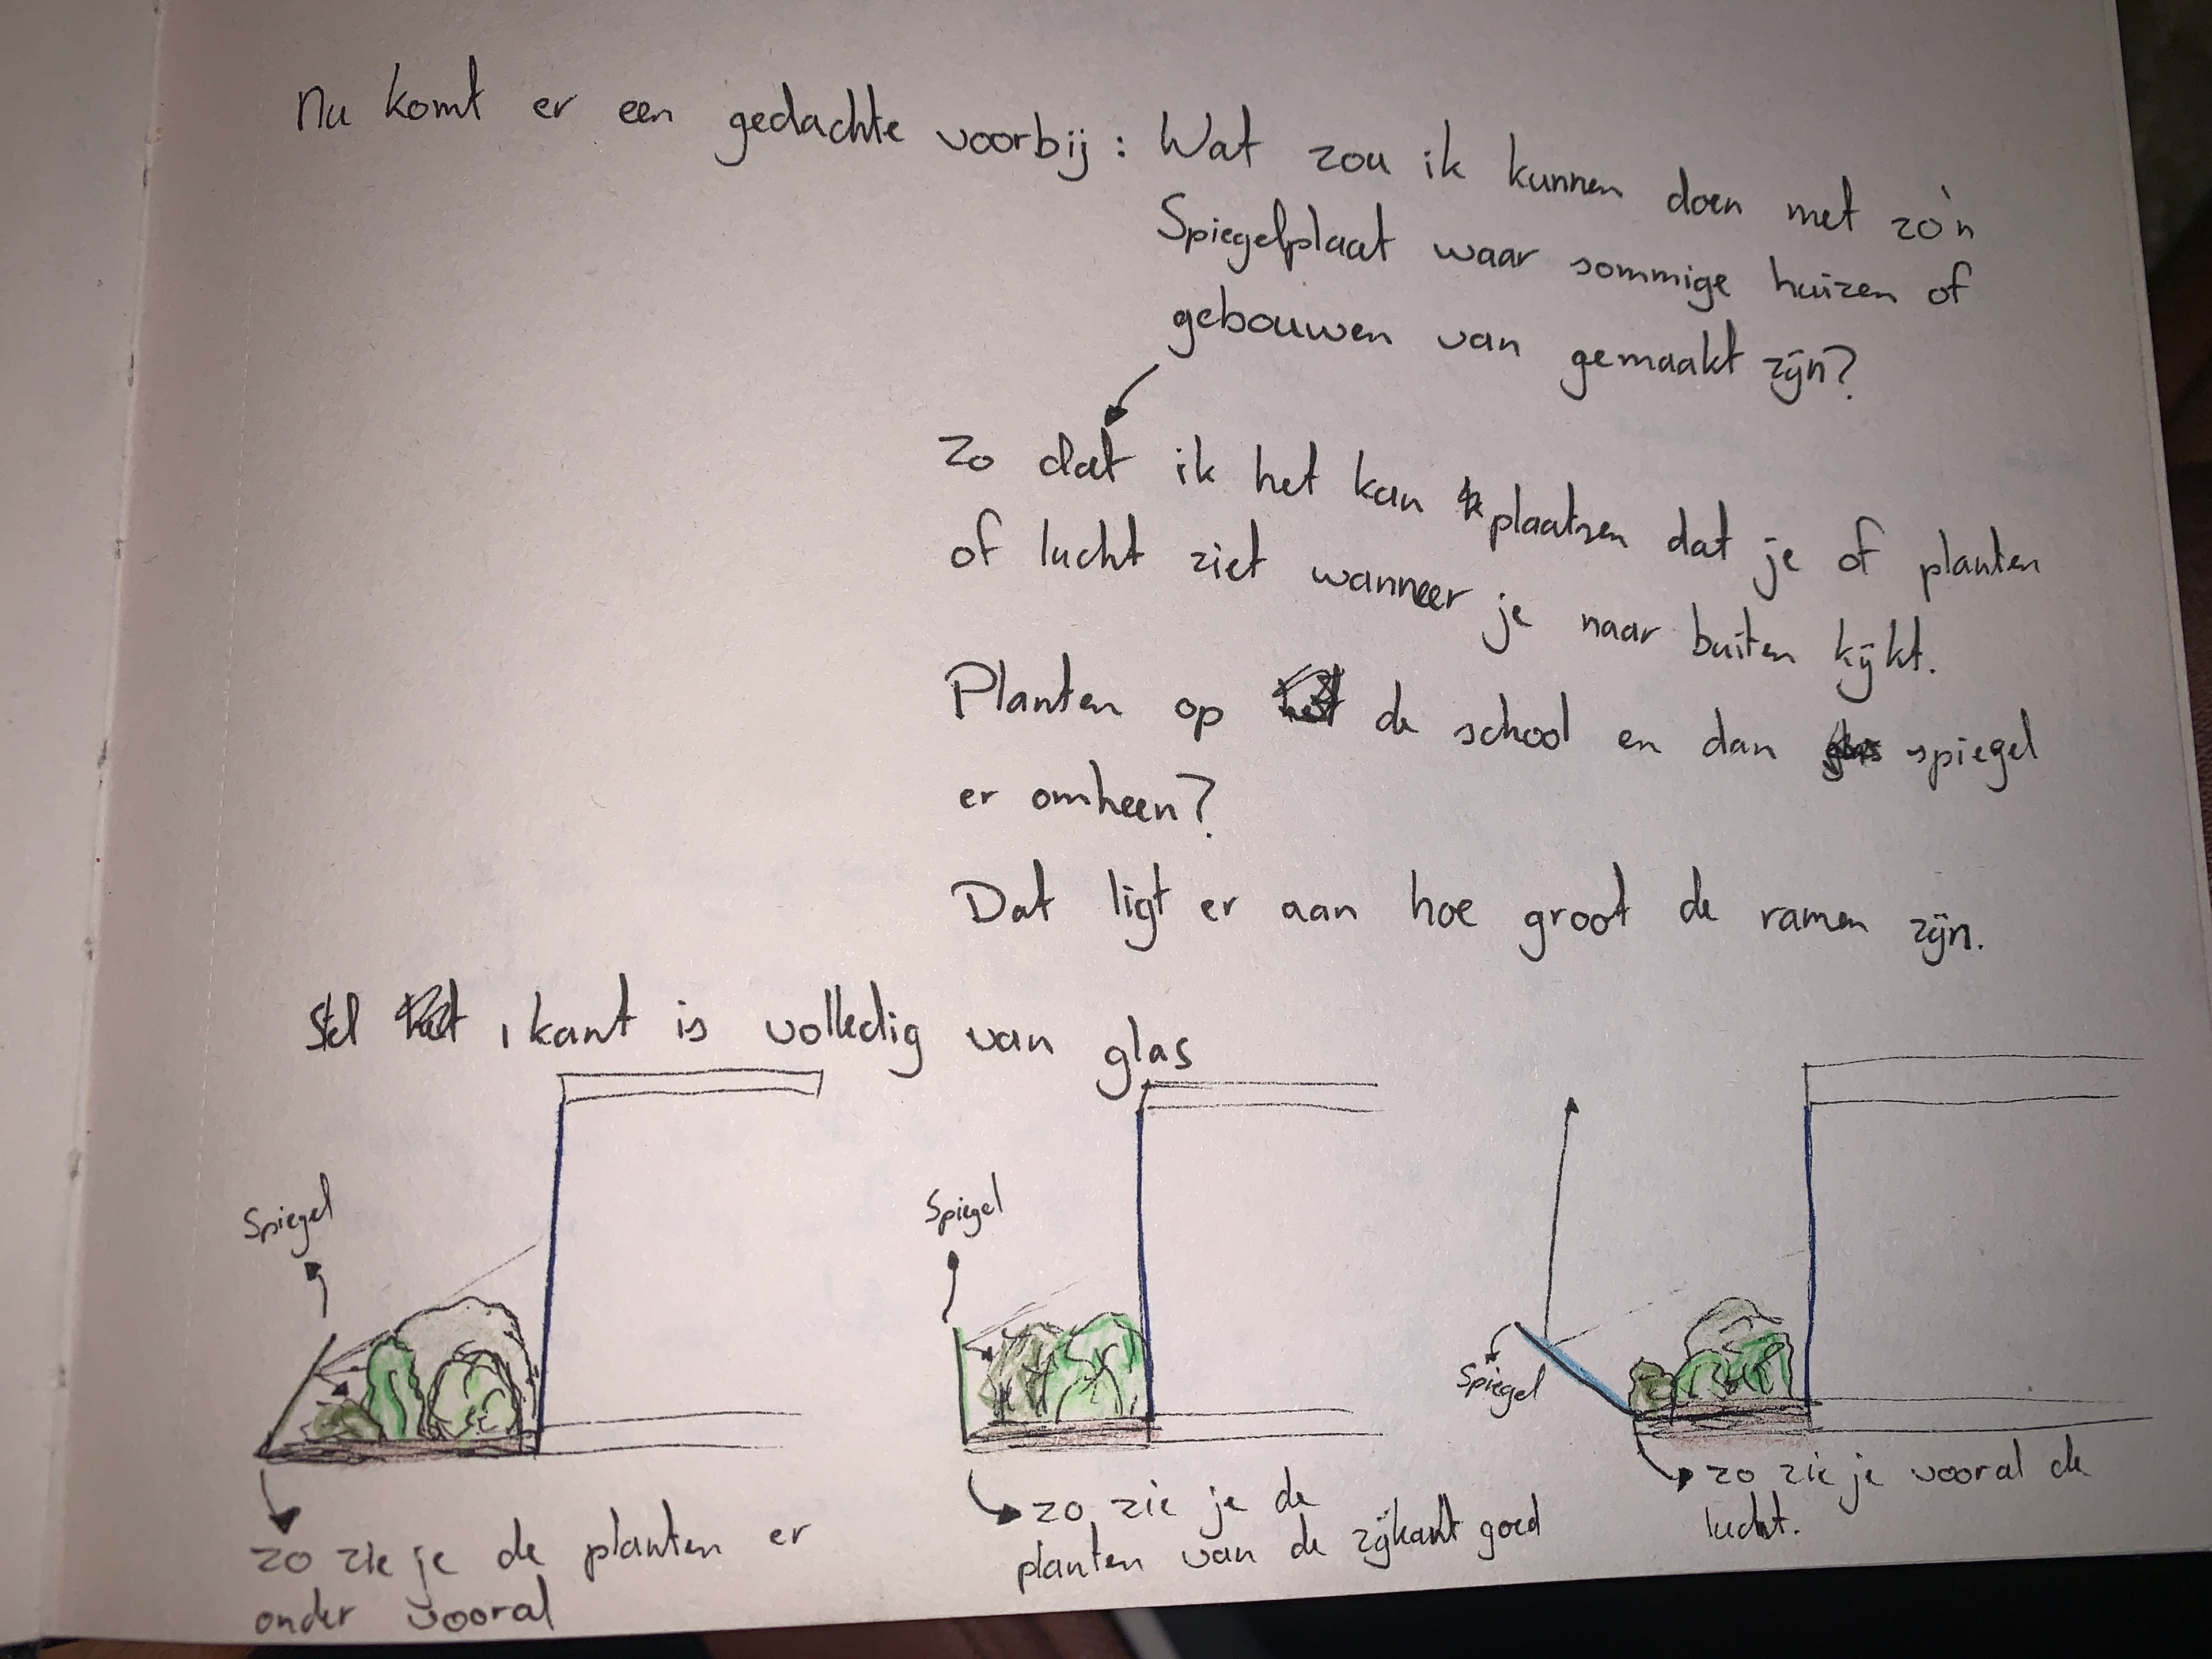 Nu komt er een gedachte voorbij: Wat zou ik kunnen doen met zo'n
Spiegelplaat waar sommige huizen of
gebouwen van gemaakt zijn?
Zo dat ik het kan plaatsen dat je of planten
of lucht ziet wanneer je naar buiten kijkt.
Planten op de school en dan spiegel
er omheen?
Dat ligt er aan hoe groot de ramen zijn.
Stel 1 kant is volledig van glas
Spiegel
zo zie je de planten er
onder vooral
Spiegel
zo zie je de
planten van de zijkant goed
Spiegel
zo zie je vooral de
lucht.